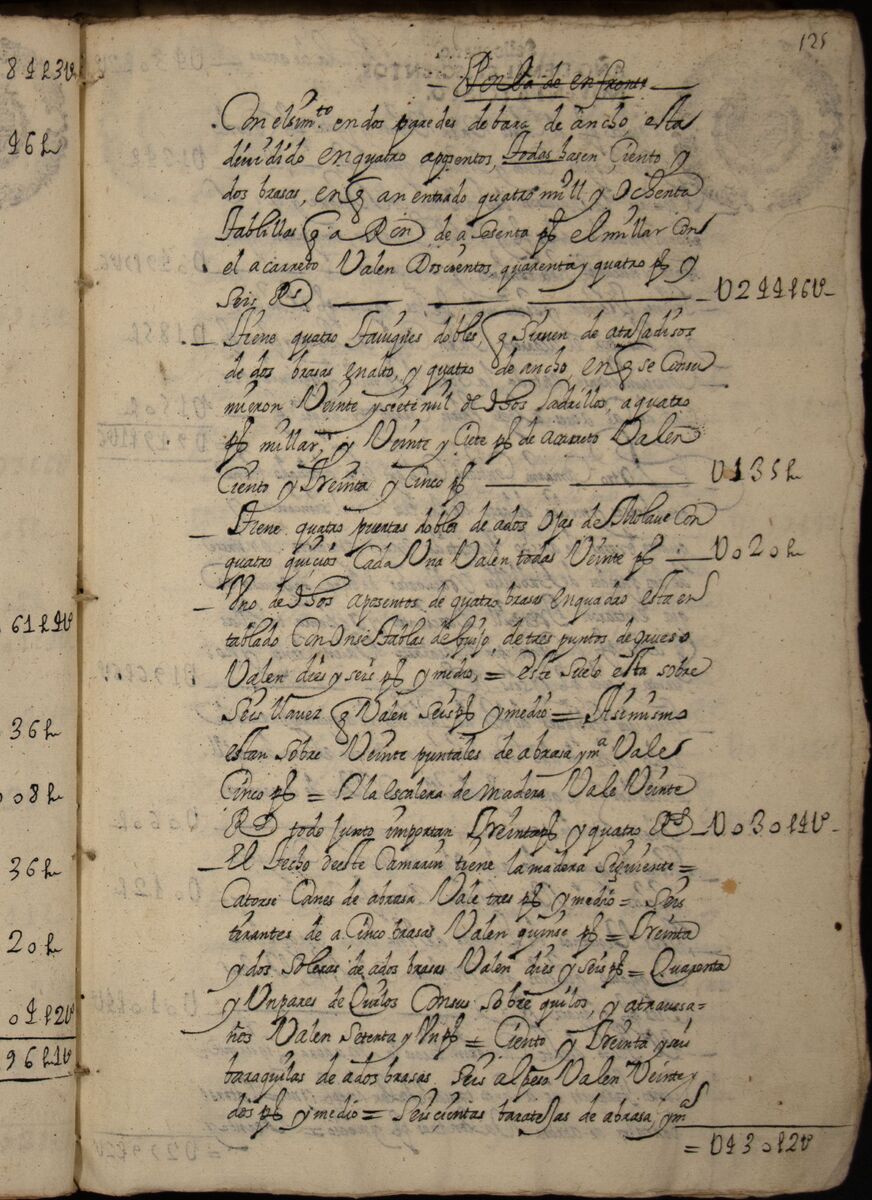 8423U
46h
61h4U
36h
008h
36h
20h
0412U
96h1U
125
Por la de enfrente
Con el simto. en dos paredes de bara de ancho, esta
deuidido en quatro aposentos, todas hasen Ciento y
dos brasas, en q an entrado quatro mill y Ochenta
tablillas q a Ron de a sesenta ps el millar Con
el acarreto Valen Doscientos, quarenta y quatro ps y
seis Rs — U24416U
Tiene quatro tauiques dobles, q siruen de atasadisos
de dos brasas en alto, y quatro de ancho, en q se Consu
mieron Veinte y siete mil de dhos ladrillos, a quatro
ps millar, y Veinte y Ciete ps de acarreto Valen
Ciento y treinta y Cinco ps — U135h
Tiene quatro puertas dobles de a dos Ojas de Molaue Con
quatro quicios Cada Una Valen todas Veinte ps — U020h
Uno de dhos aposentos de quatro brasas en quadro esta en
tablado Con Onse tablas de guijo, de tres puntos de grueso
Valen dies y seis ps y medio, = este suelo esta sobre
Seis llaues q Valen seis ps y medio = Asimismo
estan sobre Veinte puntales de a brasa y ma. Vale
Cinco ps = Y la escalera de madera Vale Veinte
Rs todo junto importan treinta ps y quatro Rs — U03014U
El techo de este Camarin tiene la madera Siguiente =
Catorse Canes de a brasa Vale tres ps y medio = Seis
tirantes de a Cinco brasas Valen quinse ps = treinta
y dos soleras de a dos brasas Valen dies y seis ps = Quarenta
y Un pares de Quilos Con sus sobre quilos, y atrauesa=
ños Valen setenta y Un ps = Ciento y treinta y seis
baraquilas de a dos brasas seis al peso Valen Veinte y
dos ps y medio = Seiscientas de a brasa y ma.
= U43012U